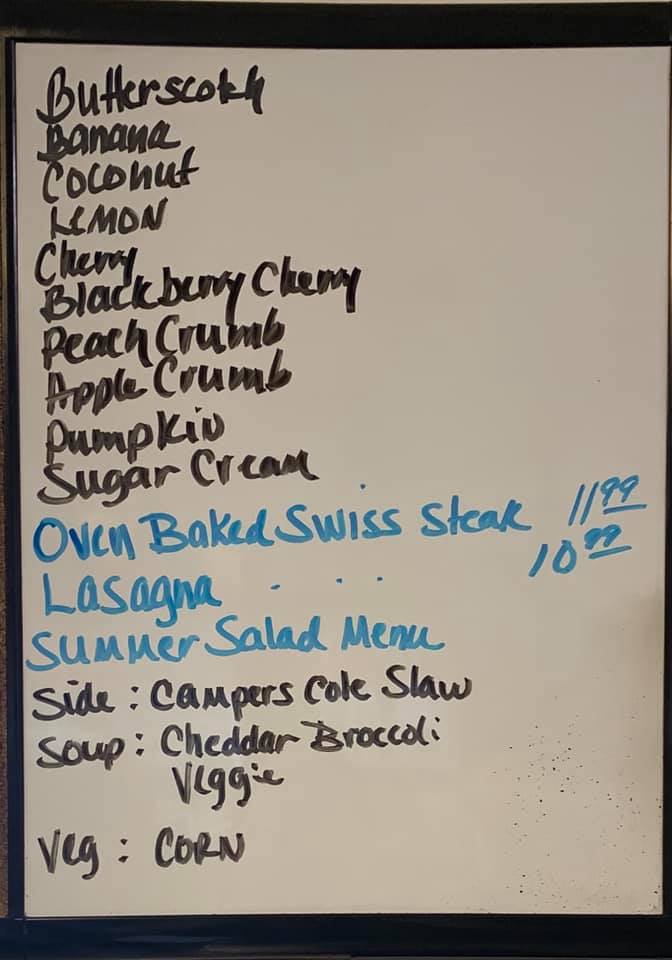 Butterscotch
Banana
Coconut
LEMON
Cherry
Blackberry Cherry
Peach Crumb
Apple Crumb
Pumpkin
Sugar Cream
Oven Baked Swiss Steak 11.99
Lasagna . . . 10.99
Summer Salad Menu
Side : Campers Cole Slaw
Soup : Cheddar Broccoli
Veggie
Veg : CORN